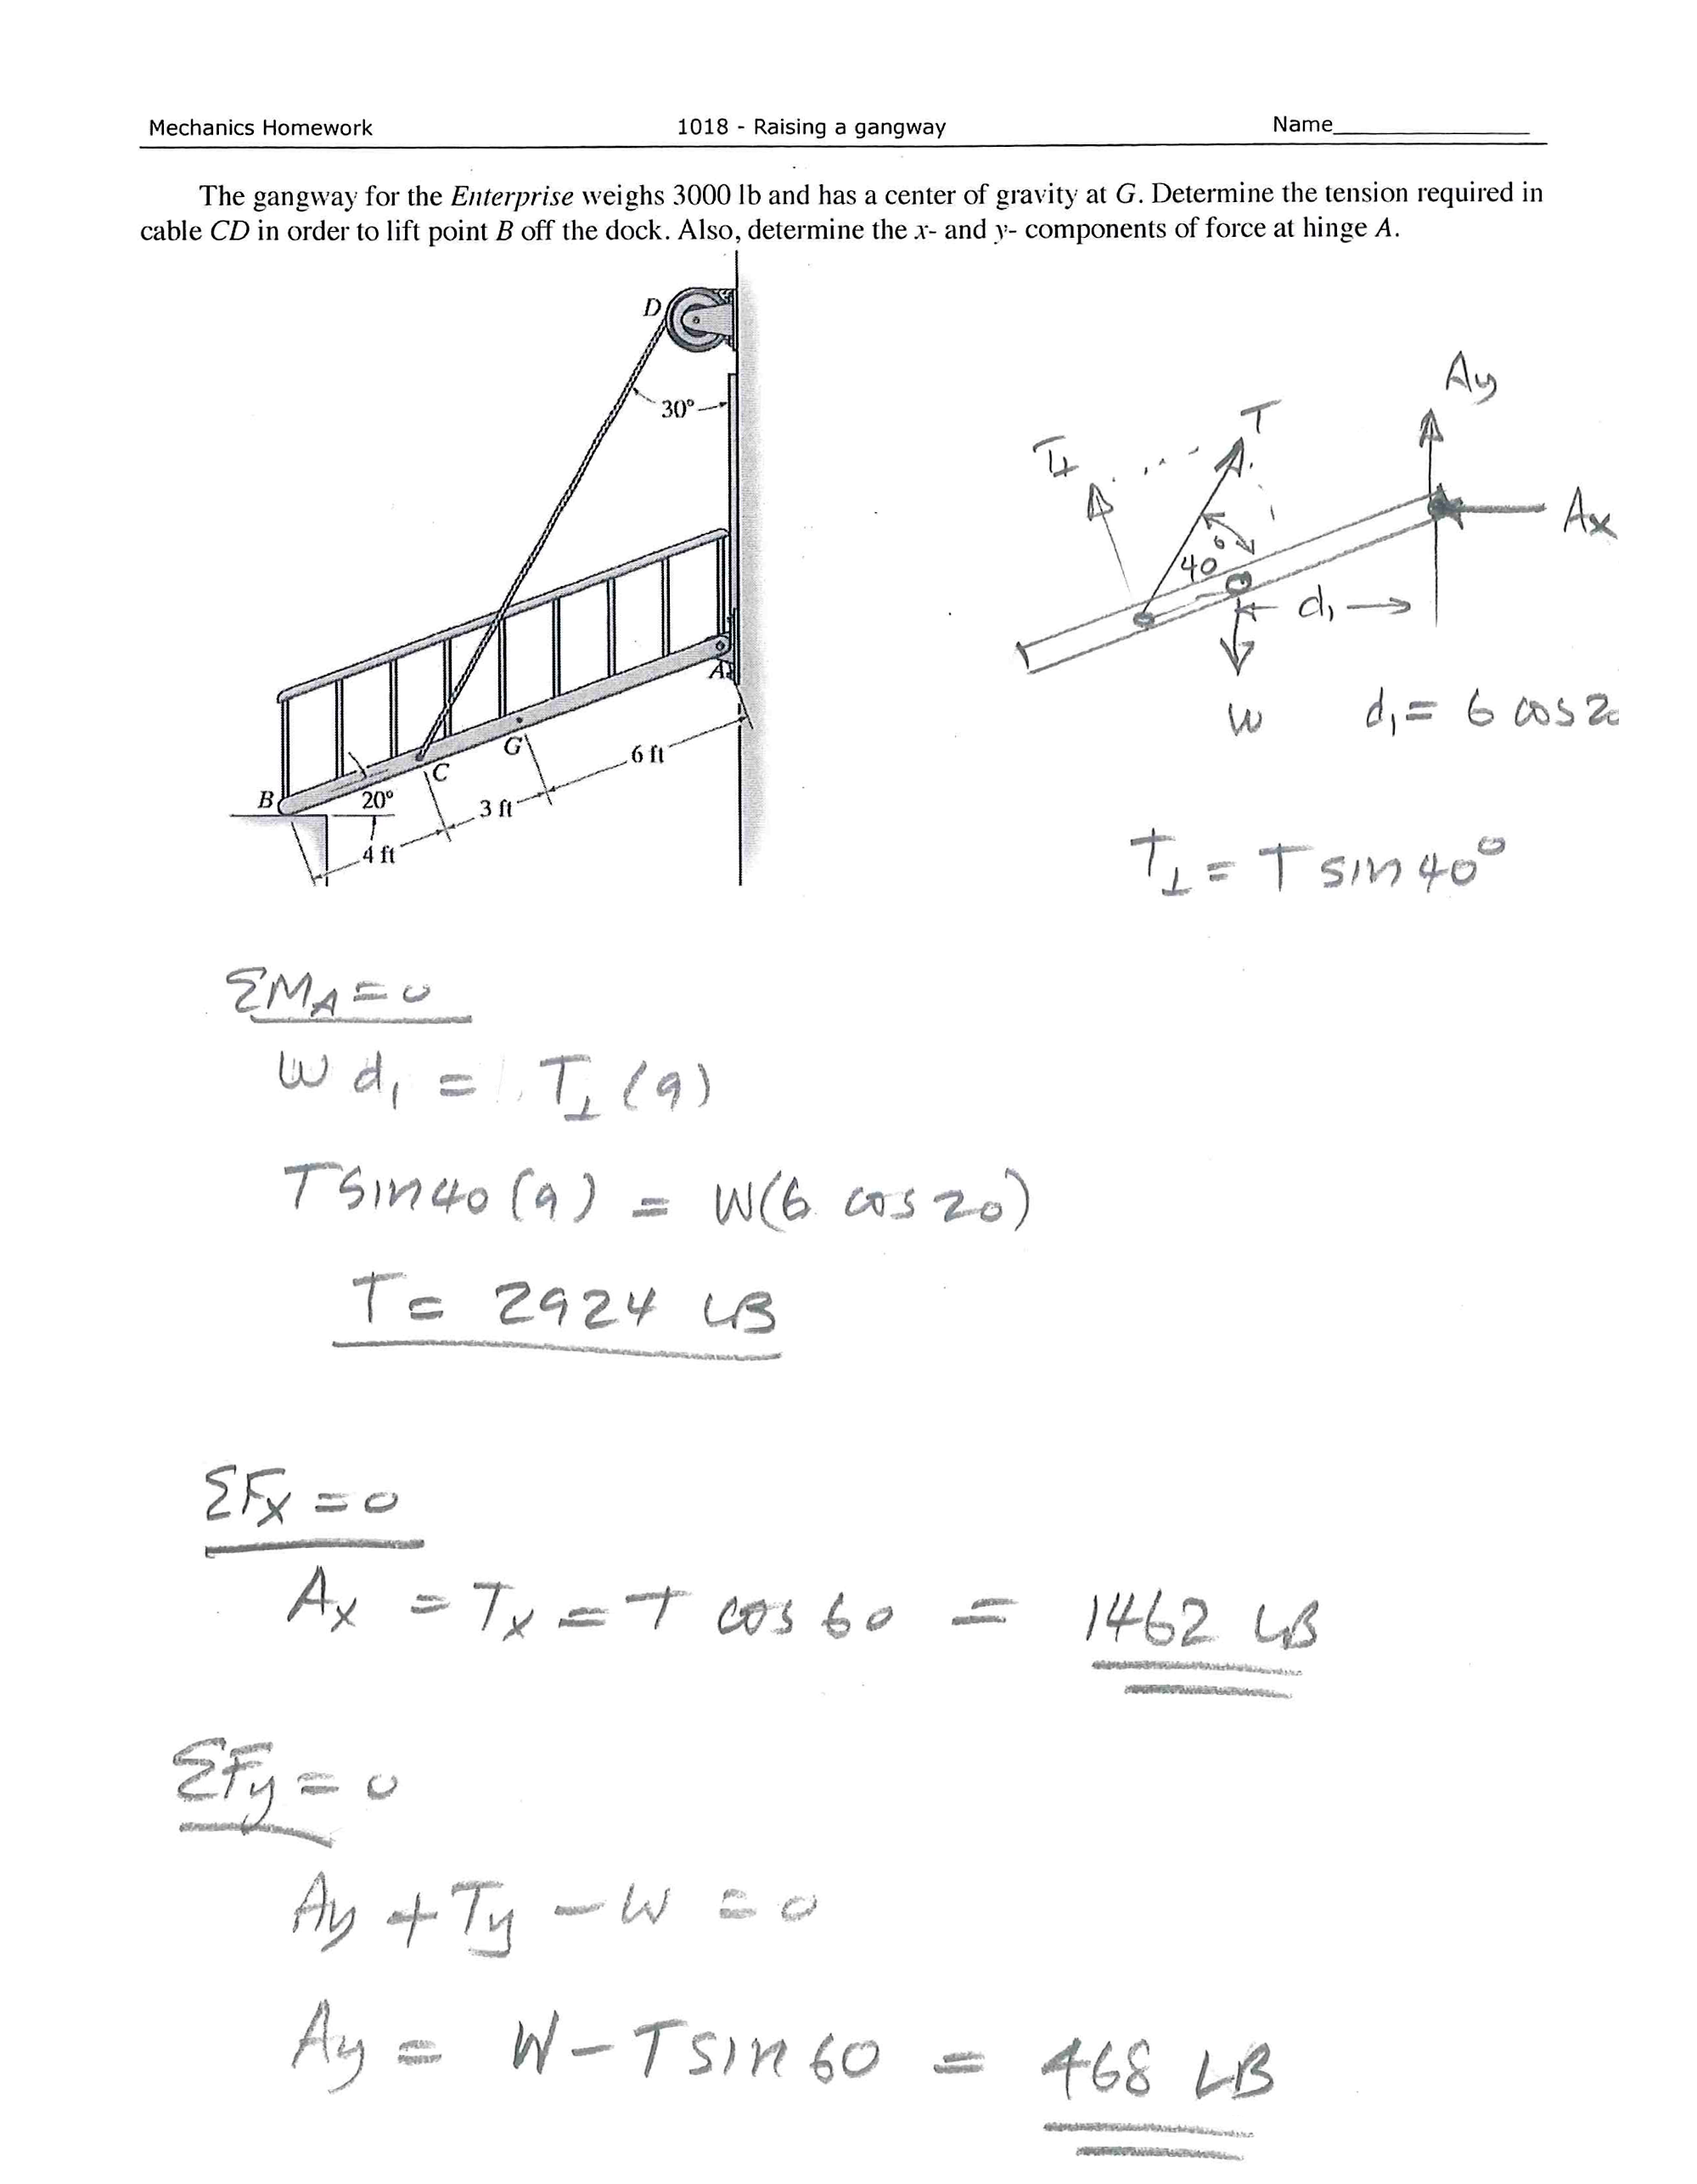 Mechanics Homework 1018 - Raising a gangway Name
The gangway for the Enterprise weighs 3000 lb and has a center of gravity at G. Determine the tension required in
cable CD in order to lift point B off the dock. Also, determine the x- and y- components of force at hinge A.
D
30°
A
G
6 ft
C
B
20°
3 ft
4 ft
Ay
T
T⊥
Ax
40°
d₁
W
d₁ = 6 cos 20
T⊥ = T sin 40°
ΣMA = 0
W d₁ = T⊥ (9)
T sin 40 (9) = W(6 cos 20)
T = 2924 LB
ΣFx = 0
Ax = Tx = T cos 60 = 1462 LB
ΣFy = 0
Ay + Ty - W = 0
Ay = W - T sin 60 = 468 LB